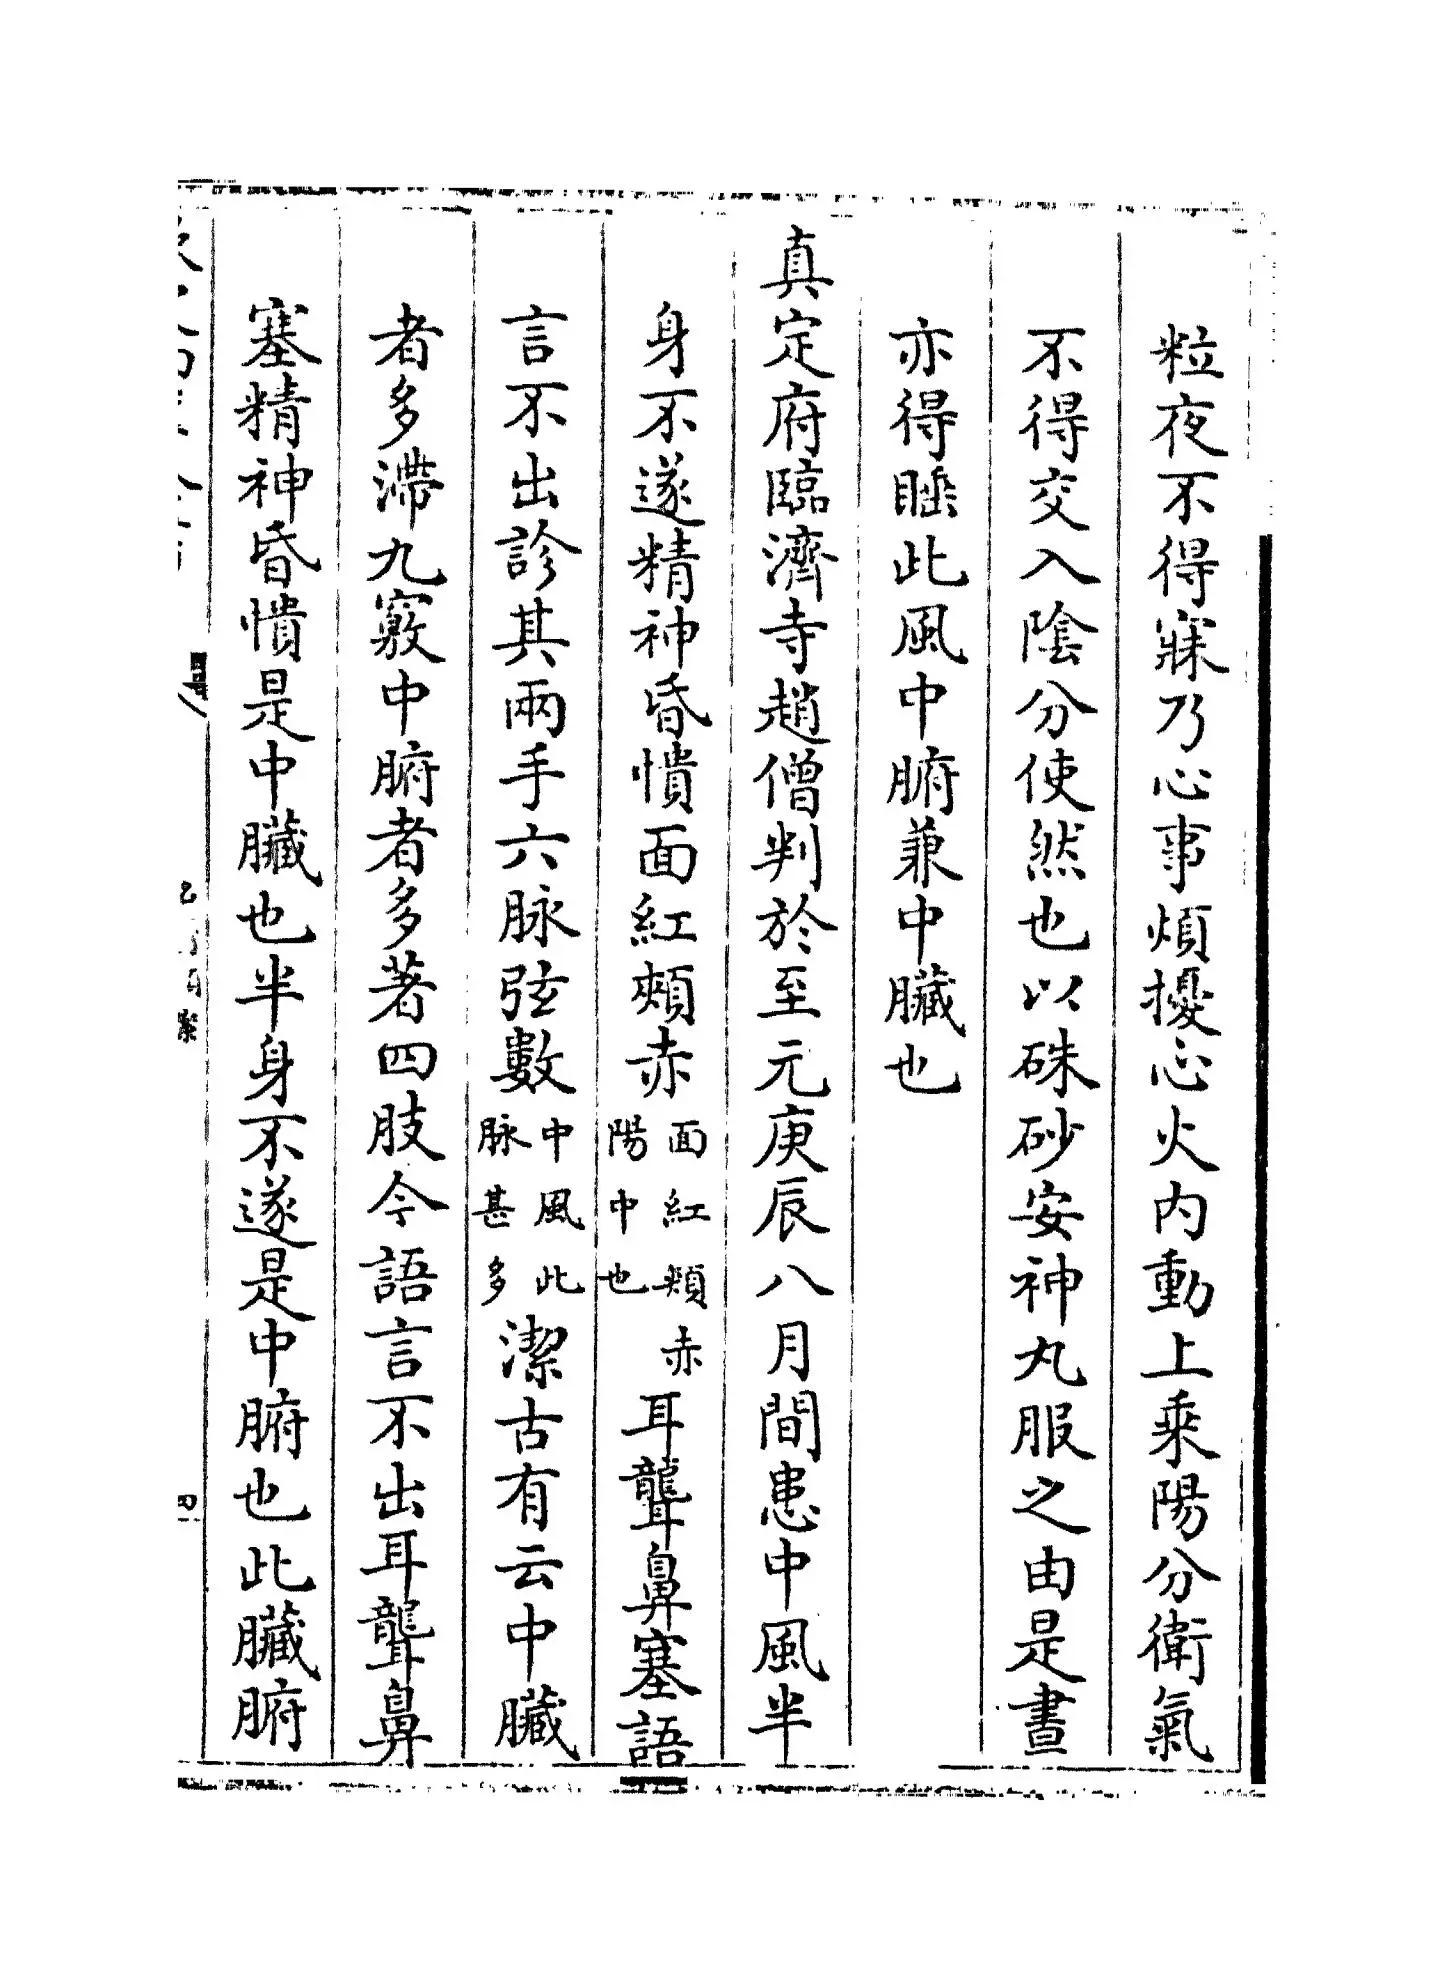 粒夜不得寐乃心事煩擾心火内動上乘陽分衛氣
不得交入陰分使然也以硃砂安神丸服之由是晝
亦得睡此風中腑兼中臟也
真定府臨濟寺趙僧判於至元庚辰八月間患中風半
身不遂精神昏憒面紅頰赤面紅頰赤陽中也耳聾鼻塞語
言不出診其兩手六脉弦數中風此脉甚多潔古有云中臟
者多滯九竅中腑者多著四肢今語言不出耳聾鼻
塞精神昏憒是中臟也半身不遂是中腑也此臟腑
四